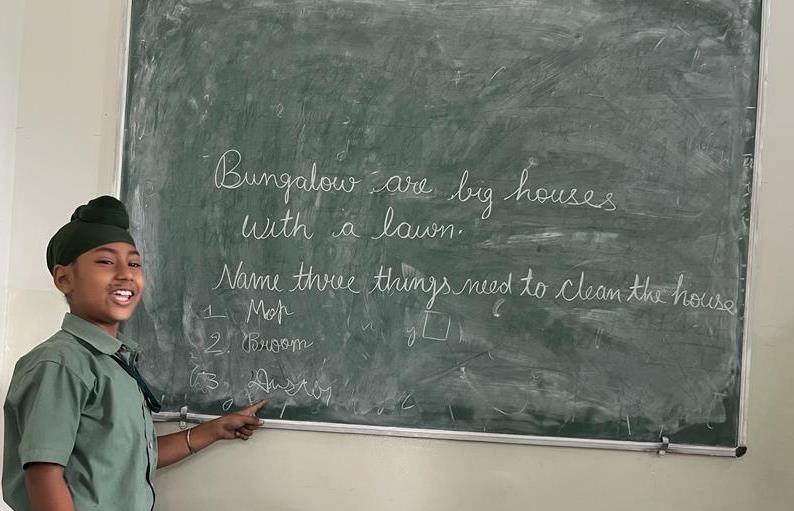 Bungalow are big houses
with a lawn.
Name three things need to clean the house
1. Mop
2. Broom
3. Duster